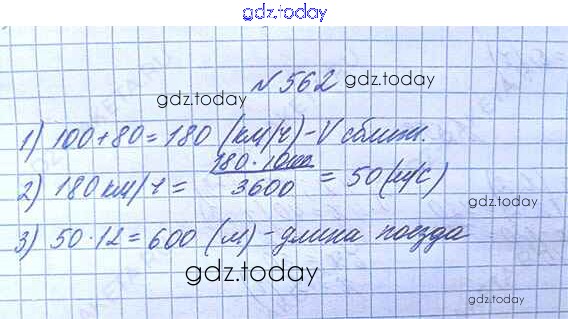 gdz.today
№ 562 gdz.today
gdz.today
1) 100+80=180 (км/ч) - V сближ.
2) 180 км/ч = 180·1000/3600 = 50 (м/с)
gdz.today
3) 50·12=600 (м) - длина поезда
gdz.today
gdz.today